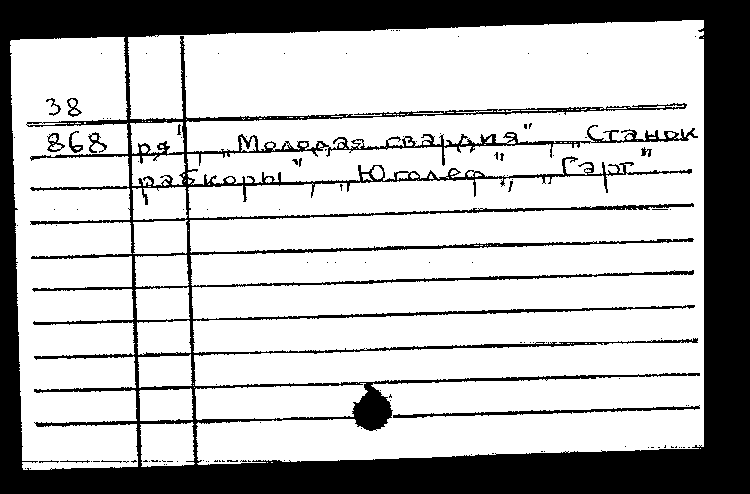 38
868 ря", „Молодая гвардия", „Станок
рабкоры", „Юголеф", „Гарт"